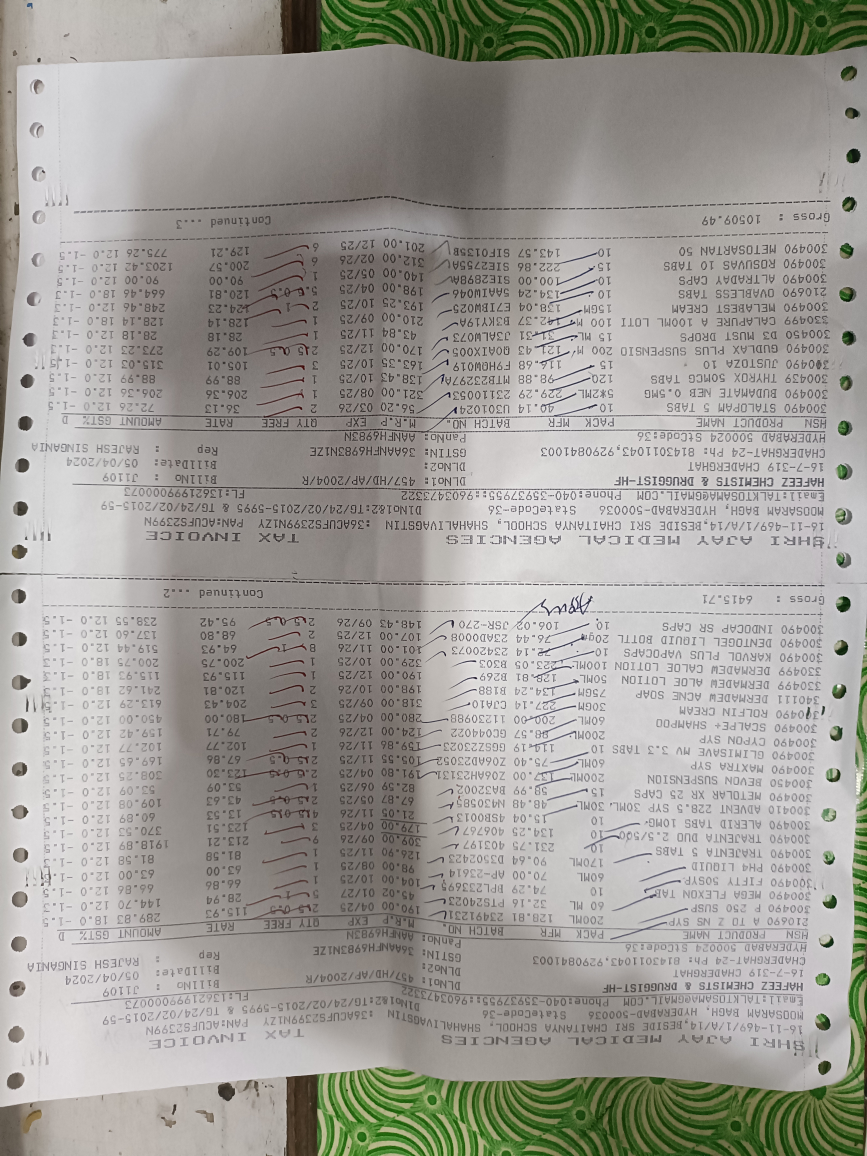 SHRI AJAY MEDICAL AGENCIES TAX INVOICE
16-11-469/1/A/14,BESIDE SRI CHAITANYA SCHOOL, SHAHALIVAGSTIN :36ACUFS2399N1ZY PAN:ACUFS2399N
MOOSARAM BAGH, HYDERABAD-500036 StateCode-36 DlNo1&2:TG/24/02/2015-5995 & TG/24/02/2015-59
Email:TALKTOSAMA@GMAIL.COM Phone:040-35937955::9603473322 FL:13621999000073
HAFEEZ CHEMISTS & DRUGGIST-HF DLNo1: 457/HD/AP/2004/R BillNo : J1109
16-7-319 CHADERGHAT DLNo2: BillDate: 05/04/2024
CHADERGHAT-24 Ph: 8143011043,9290841003 GSTIN: 36AANFH6983N1ZE Rep : RAJESH SINGANIA
HYDERABAD 500024 StCode:36 PanNo: AANFH6983N
HSN PRODUCT NAME PACK MFR BATCH NO. M.R.P EXP QTY FREE RATE AMOUNT GST% D
210690 A TO Z NS SYP 200ML 128.81 23491231 190.00 04/25 2.5 0.5 115.93 289.83 18.0 -1.5
300490 P 250 SUSP 60 ML 32.16 PTS24023 45.02 01/27 5 1 28.94 144.70 12.0 -1.5
300490 MEGA FLEXON TAB 10 74.29 BPL233695 104.00 10/25 1 66.86 66.86 12.0 -1.5
300490 FIFTY 50SYP 60ML 70.00 AP-23614 98.00 08/25 1 63.00 63.00 12.0 -1.5
300490 PH4 LIQUID 170ML 90.64 D3502423 126.90 11/25 1 81.58 81.58 12.0 -1.5
300490 TRAJENTA 5 TABS 10 231.75 403197 309.00 09/26 9 213.21 1918.89 12.0 -1.5
300490 TRAJENTA DUO 2.5/500 10 134.25 406767 179.00 04/25 3 123.51 370.53 12.0 -1.5
300490 ALERID TABS 10MG 10 15.04 4SB0013 21.05 11/26 4.5 0.5 13.53 60.89 12.0 -1.5
300410 ADVENT 228.5 SYP 30ML 30ML 48.48 MN30585 67.87 05/25 2.5 0.5 43.63 109.08 12.0 -1.5
300490 METOLAR XR 25 CAPS 15 58.99 BA32002 82.59 06/25 1 53.09 53.09 12.0 -1.5
300450 BEVON SUSPENSION 200ML 137.00 ZO6AH23131 191.80 04/25 2.5 0.5 123.30 308.25 12.0 -1.5
300490 MAXTRA SYP 60ML 75.40 ZO6AD23052 105.55 11/25 2.5 0.5 67.86 169.65 12.0 -1.5
300490 GLIMISAVE MV 3.3 TABS 10 114.19 GGSG23023 159.86 11/26 1 102.77 102.77 12.0 -1.5
300490 CYPON SYP 200ML 88.57 GC044022 124.00 12/26 2 79.71 159.42 12.0 -1.5
300490 SCALPE+ SHAMPOO 60ML 200.00 1123098B 280.00 04/25 2.5 0.5 180.00 450.00 12.0 -1.5
300490 ROLFIN CREAM 30GM 227.14 CJA10 318.00 09/25 3 204.43 613.29 12.0 -1.5
340111 DERMADEW ACNE SOAP 75GM 134.24 B188 198.00 10/26 2 120.81 241.62 18.0 -1.5
330499 DERMADEW ALOE LOTION 50ML 128.81 B269 190.00 12/25 1 115.93 115.93 18.0 -1.5
330499 DERMADEW CALOE LOTION 100ML 223.05 B303 329.00 10/25 1 200.75 200.75 18.0 -1.5
300490 KARVOL PLUS VAPOCAPS 10 72.14 23420073 101.00 11/26 8 1 64.93 519.44 12.0 -1.5
300490 DENTOGEL LIQUID BOTTL 20gm 76.44 23AD0008 107.00 12/25 2 68.80 137.60 12.0 -1.5
300490 INDOCAP SR CAPS 10 106.02 JSR-270 148.43 09/26 2.5 0.5 95.42 238.55 12.0 -1.5
Gross : 6415.71 Continued ...2
SHRI AJAY MEDICAL AGENCIES TAX INVOICE
16-11-469/1/A/14,BESIDE SRI CHAITANYA SCHOOL, SHAHALIVAGSTIN :36ACUFS2399N1ZY PAN:ACUFS2399N
MOOSARAM BAGH, HYDERABAD-500036 StateCode-36 DlNo1&2:TG/24/02/2015-5995 & TG/24/02/2015-59
Email:TALKTOSAMA@GMAIL.COM Phone:040-35937955::9603473322 FL:13621999000073
HAFEEZ CHEMISTS & DRUGGIST-HF DLNo1: 457/HD/AP/2004/R BillNo : J1109
16-7-319 CHADERGHAT DLNo2: BillDate: 05/04/2024
CHADERGHAT-24 Ph: 8143011043,9290841003 GSTIN: 36AANFH6983N1ZE Rep : RAJESH SINGANIA
HYDERABAD 500024 StCode:36 PanNo: AANFH6983N
HSN PRODUCT NAME PACK MFR BATCH NO. M.R.P EXP QTY FREE RATE AMOUNT GST% D
300490 STALOPAM 5 TABS 10 40.14 U301024 56.20 03/26 2 36.13 72.26 12.0 -1.5
300490 BUDAMATE NEB 0.5MG 5X2ML 229.29 23110053 321.00 08/25 1 206.36 206.36 12.0 -1.5
300439 THYROX 50MCG TABS 120 98.88 MT23B7297A 138.43 10/25 1 88.99 88.99 12.0 -1.5
300490 JUSTOZA 10 15 116.68 F9MG019 163.35 10/25 3 105.01 315.03 12.0 -1.5
300490 GUDLAX PLUS SUSPENSIO 200 M 121.43 QOAIX005 170.00 12/25 2.5 0.5 109.29 273.23 12.0 -1.5
300450 D3 MUST DROPS 15 ML 31.31 J3WLM073 43.84 11/25 1 28.18 28.18 12.0 -1.5
330499 CALAPURE A 100ML LOTI 100 M 142.37 B3KRY19A 210.00 09/25 1 128.14 128.14 18.0 -1.5
300490 MELABEST CREAM 15GM 138.04 E71BM025 193.25 10/25 2 1 124.23 248.46 12.0 -1.5
210690 OVABLESS TABS 10 134.24 5AAIM046 198.00 04/25 5.5 0.5 120.81 664.46 18.0 -1.5
300490 ALTRADAY CAPS 10 100.00 SIE2B98A 140.00 05/25 1 90.00 90.00 12.0 -1.5
300490 ROSUVAS 10 TABS 15 222.86 SIE2755A 312.00 02/26 6 200.57 1203.42 12.0 -1.5
300490 METOSARTAN 50 10 143.57 SIF0135B 201.00 12/25 6 129.21 775.26 12.0 -1.5
Gross : 10509.49 Continued ...3